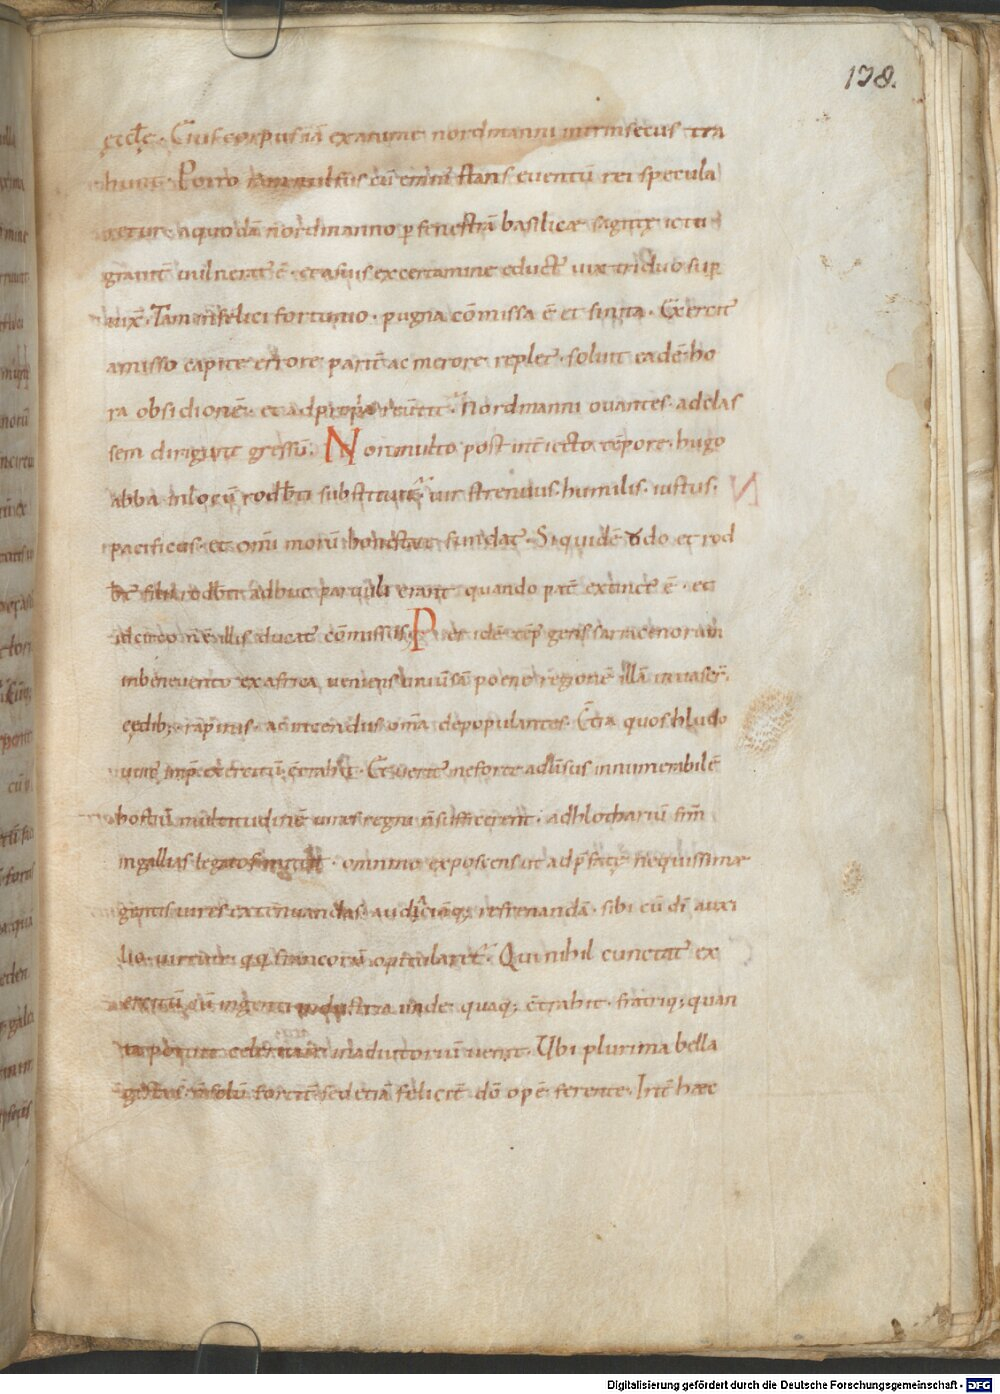 138.
ęccłę. Cuius corpus iā exanime nordmanni intrinsecus tra
hunt. Porro ramnulfus cū eminus stans eventū rei specula
retur a quodā nordmanno ꝑ fenestrā basilicæ sagittæ ictu
gravit̄ vulnerat᷑ ē. et a suis ex certamine educt᷑ vix triduo sup
vix̄. Tam infelici fortunio. pugna cōmissa ē et finita. Exercit᷑
amisso capite errore parit̄ ac merore replet᷑. solvit eadē ho
ra obsidionē. et ad propria revertit᷑. Nordmanni ovantes. ad clas
sem dirigunt gressū. Non multo post int̄iecto tēpore. hugo
abba in locū rodb̄ti substituit᷑ vir strenuus. humilis. iustus.
pacificus. et omī morū honestate fundat᷑. Siquidē odo et rod
b̄t᷑ filii rodb̄ti adhuc parvuli erant quando pat̄ extinct᷑ ē. et
idcirco n̄ ē illis ducat᷑ cōmissus. Per idē tēp᷑ gens sarracenorum
in benevento ex africa veniens univ̄sā poene regionē illā invaser̄.
cędib; rapinis. ac incendiis om̄ia depopulantes. Cōtra quos hludo
uuic᷑ imp̄ exercitū cōtrahit. Et verit᷑ ne forte adv̄sus innumerabilē
hostiū multitudinē vires regni n̄ sufficerent. ad hlotharium frm̄
in gallias legatos mittit. omnino exposcens ut ad p̄fatę nequissimæ
gentis vires extenuandas. audaciāq; refrenandā. sibi cū dī auxi
lio. virtute qq; francorū opitularet᷑. Qui nihil cunctat᷑ ex
ercitū cū ingenti industria unde quaq; cōtrahit. fratriq; quan
ta potuit celeritate in adiutoriū venit. Ubi plurima bella
gestas n̄ solū fortit̄ sed etiā felicit̄ dō opē ferente. Int̄ hæc
Digitalisierung gefördert durch die Deutsche Forschungsgemeinschaft - DFG